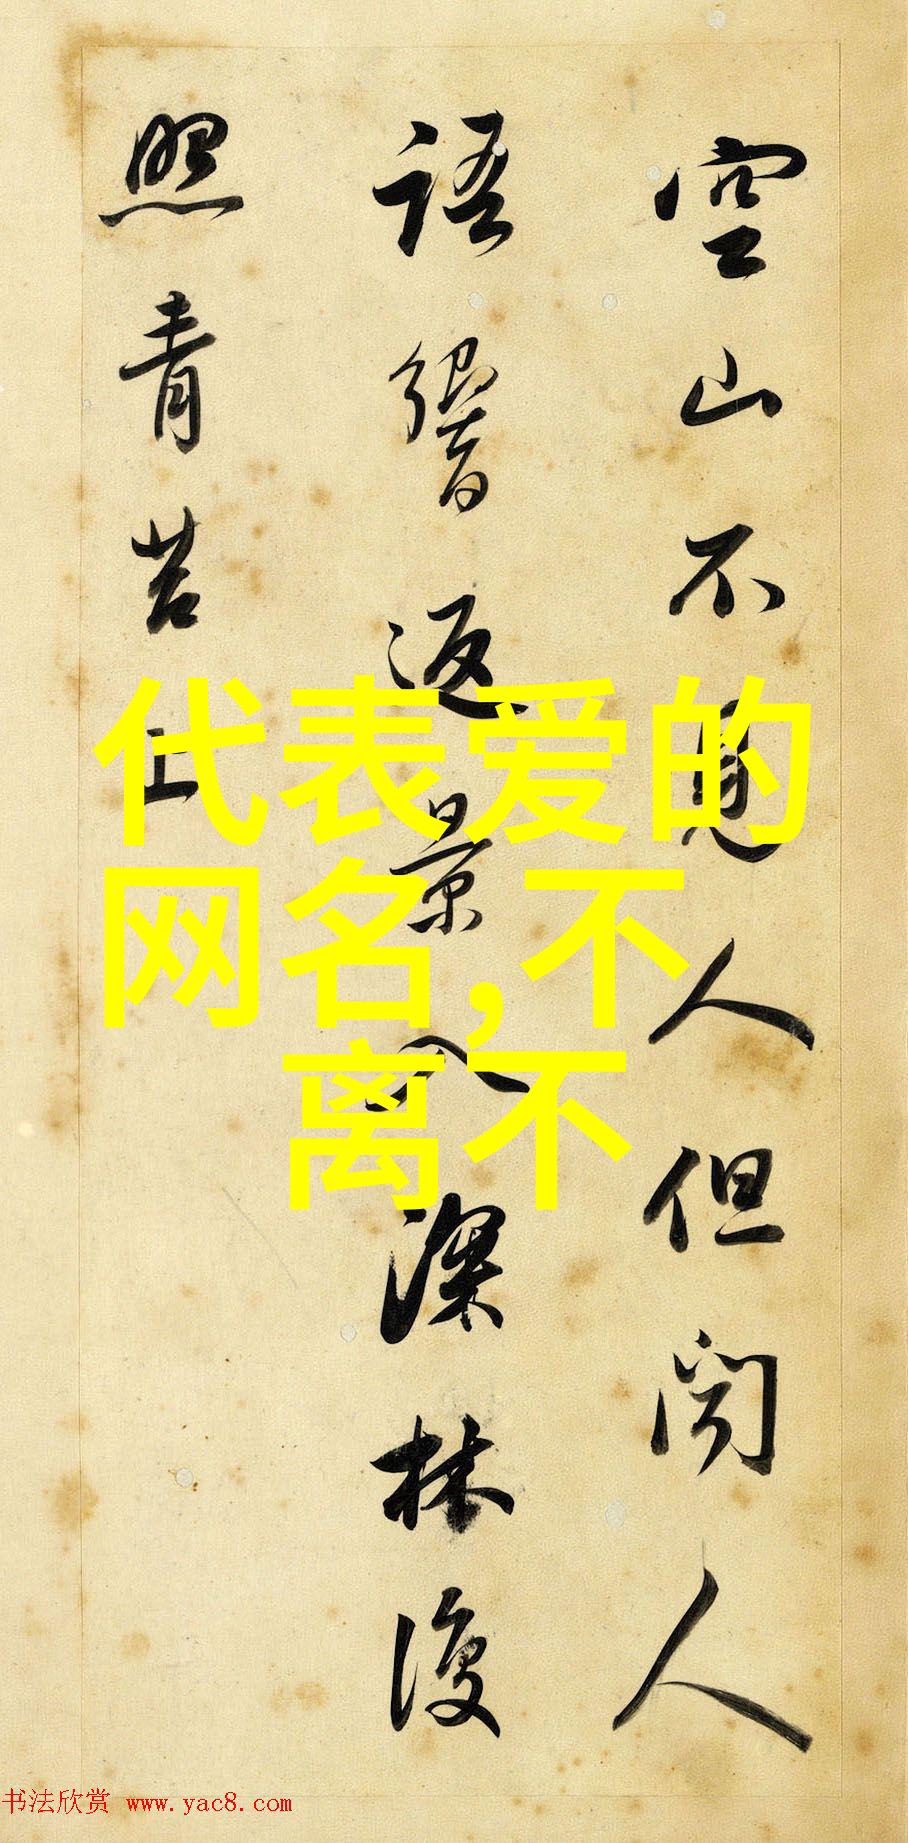 空山不見人但闻人
語響返景入深林復
照青苔上
代表爱的
网名,不
离不
书法欣赏 www.yac8.com